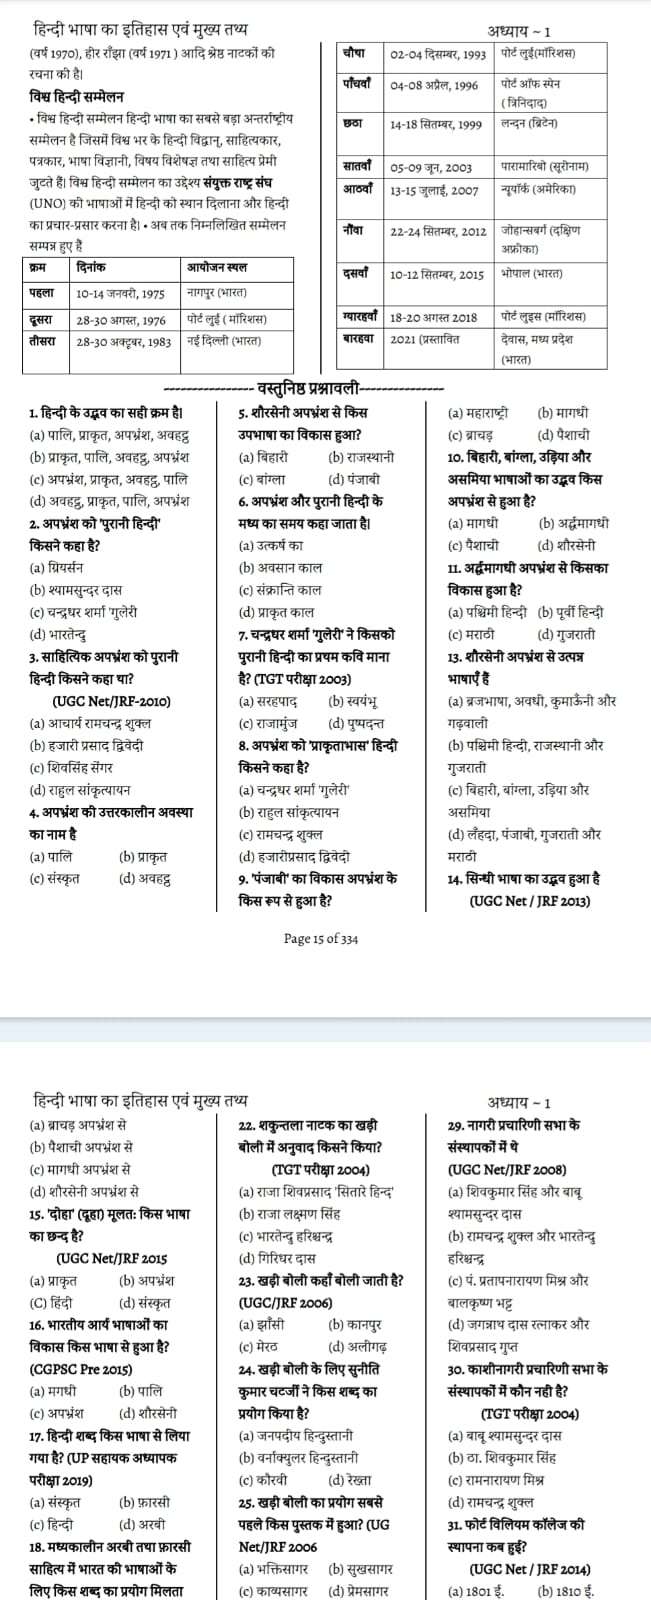 हिन्दी भाषा का इतिहास एवं मुख्य तथ्य
अध्याय ~ 1
(वर्ष 1970), हीर राँझा (वर्ष 1971 ) आदि श्रेष्ठ नाटकों की
रचना की है।
विश्व हिन्दी सम्मेलन
• विश्व हिन्दी सम्मेलन हिन्दी भाषा का सबसे बड़ा अन्तर्राष्ट्रीय
सम्मेलन है जिसमें विश्व भर के हिन्दी विद्वान, साहित्यकार,
पत्रकार, भाषा विज्ञानी, विषय विशेषज्ञ तथा साहित्य प्रेमी
जुटते हैं। विश्व हिन्दी सम्मेलन का उद्देश्य संयुक्त राष्ट्र संघ
(UNO) की भाषाओं में हिन्दी को स्थान दिलाना और हिन्दी
का प्रचार-प्रसार करना है। • अब तक निम्नलिखित सम्मेलन
सम्पन्न हुए हैं
क्रम दिनांक आयोजन स्थल
पहला 10-14 जनवरी, 1975 नागपुर (भारत)
दूसरा 28-30 अगस्त, 1976 पोर्ट लुई ( मॉरिशस)
तीसरा 28-30 अक्टूबर, 1983 नई दिल्ली (भारत)
चौथा 02-04 दिसम्बर, 1993 पोर्ट लुई(मॉरिशस)
पाँचवाँ 04-08 अप्रैल, 1996 पोर्ट ऑफ स्पेन
( त्रिनिदाद)
छठा 14-18 सितम्बर, 1999 लन्दन (ब्रिटेन)
सातवाँ 05-09 जून, 2003 पारामारिबो (सूरीनाम)
आठवाँ 13-15 जुलाई, 2007 न्यूयॉर्क (अमेरिका)
नौंवा 22-24 सितम्बर, 2012 जोहान्सबर्ग (दक्षिण
अफ्रीका)
दसवाँ 10-12 सितम्बर, 2015 भोपाल (भारत)
ग्यारहवाँ 18-20 अगस्त 2018 पोर्ट लुइस (मॉरिशस)
बारहवा 2021 (प्रस्तावित देवास, मध्य प्रदेश
(भारत)
---------------- वस्तुनिष्ठ प्रश्नावली----------------
1. हिन्दी के उद्भव का सही क्रम है।
(a) पालि, प्राकृत, अपभ्रंश, अवहट्ठ
(b) प्राकृत, पालि, अवहट्ठ, अपभ्रंश
(c) अपभ्रंश, प्राकृत, अवहट्ठ, पालि
(d) अवहट्ठ, प्राकृत, पालि, अपभ्रंश
2. अपभ्रंश को 'पुरानी हिन्दी'
किसने कहा है?
(a) ग्रियर्सन
(b) श्यामसुन्दर दास
(c) चन्द्रधर शर्मा 'गुलेरी
(d) भारतेन्दु
3. साहित्यिक अपभ्रंश को पुरानी
हिन्दी किसने कहा था?
(UGC Net/JRF-2010)
(a) आचार्य रामचन्द्र शुक्ल
(b) हजारी प्रसाद द्विवेदी
(c) शिवसिंह सेंगर
(d) राहुल सांकृत्यायन
4. अपभ्रंश की उत्तरकालीन अवस्था
का नाम है
(a) पालि (b) प्राकृत
(c) संस्कृत (d) अवहट्ठ
5. शौरसेनी अपभ्रंश से किस
उपभाषा का विकास हुआ?
(a) बिहारी (b) राजस्थानी
(c) बांग्ला (d) पंजाबी
6. अपभ्रंश और पुरानी हिन्दी के
मध्य का समय कहा जाता है।
(a) उत्कर्ष का
(b) अवसान काल
(c) संक्रान्ति काल
(d) प्राकृत काल
7. चन्द्रधर शर्मा 'गुलेरी' ने किसको
पुरानी हिन्दी का प्रथम कवि माना
है? (TGT परीक्षा 2003)
(a) सरहपाद (b) स्वयंभू
(c) राजामुंज (d) पुष्पदन्त
8. अपभ्रंश को 'प्राकृताभास' हिन्दी
किसने कहा है?
(a) चन्द्रधर शर्मा 'गुलेरी'
(b) राहुल सांकृत्यायन
(c) रामचन्द्र शुक्ल
(d) हजारीप्रसाद द्विवेदी
9. 'पंजाबी' का विकास अपभ्रंश के
किस रूप से हुआ है?
(a) महाराष्ट्री (b) मागधी
(c) ब्राचड़ (d) पैशाची
10. बिहारी, बांग्ला, उड़िया और
असमिया भाषाओं का उद्भव किस
अपभ्रंश से हुआ है?
(a) मागधी (b) अर्द्धमागधी
(c) पैशाची (d) शौरसेनी
11. अर्द्धमागधी अपभ्रंश से किसका
विकास हुआ है?
(a) पश्चिमी हिन्दी (b) पूर्वी हिन्दी
(c) मराठी (d) गुजराती
13. शौरसेनी अपभ्रंश से उत्पन्न
भाषाएँ हैं
(a) ब्रजभाषा, अवधी, कुमाऊँनी और
गढ़वाली
(b) पश्चिमी हिन्दी, राजस्थानी और
गुजराती
(c) बिहारी, बांग्ला, उड़िया और
असमिया
(d) लँहदा, पंजाबी, गुजराती और
मराठी
14. सिन्धी भाषा का उद्भव हुआ है
(UGC Net / JRF 2013)
Page 15 of 334
हिन्दी भाषा का इतिहास एवं मुख्य तथ्य
अध्याय ~ 1
(a) ब्राचड़ अपभ्रंश से
(b) पैशाची अपभ्रंश से
(c) मागधी अपभ्रंश से
(d) शौरसेनी अपभ्रंश से
15. 'दोहा' (दूहा) मूलतः किस भाषा
का छन्द है?
(UGC Net/JRF 2015
(a) प्राकृत (b) अपभ्रंश
(C) हिंदी (d) संस्कृत
16. भारतीय आर्य भाषाओं का
विकास किस भाषा से हुआ है?
(CGPSC Pre 2015)
(a) मगधी (b) पालि
(c) अपभ्रंश (d) शौरसेनी
17. हिन्दी शब्द किस भाषा से लिया
गया है? (UP सहायक अध्यापक
परीक्षा 2019)
(a) संस्कृत (b) फ़ारसी
(c) हिन्दी (d) अरबी
18. मध्यकालीन अरबी तथा फ़ारसी
साहित्य में भारत की भाषाओं के
लिए किस शब्द का प्रयोग मिलता
22. शकुन्तला नाटक का खड़ी
बोली में अनुवाद किसने किया?
(TGT परीक्षा 2004)
(a) राजा शिवप्रसाद 'सितारे हिन्द'
(b) राजा लक्ष्मण सिंह
(c) भारतेन्दु हरिश्चन्द्र
(d) गिरिधर दास
23. खड़ी बोली कहाँ बोली जाती है?
(UGC/JRF 2006)
(a) झाँसी (b) कानपुर
(c) मेरठ (d) अलीगढ़
24. खड़ी बोली के लिए सुनीति
कुमार चटर्जी ने किस शब्द का
प्रयोग किया है?
(a) जनपदीय हिन्दुस्तानी
(b) वर्नाक्युलर हिन्दुस्तानी
(c) कौरवी (d) रेख़्ता
25. खड़ी बोली का प्रयोग सबसे
पहले किस पुस्तक में हुआ? (UG
Net/JRF 2006
(a) भक्तिसागर (b) सुखसागर
(c) काव्यसागर (d) प्रेमसागर
29. नागरी प्रचारिणी सभा के
संस्थापकों में थे
(UGC Net/JRF 2008)
(a) शिवकुमार सिंह और बाबू
श्यामसुन्दर दास
(b) रामचन्द्र शुक्ल और भारतेन्दु
हरिश्चन्द्र
(c) पं. प्रतापनारायण मिश्र और
बालकृष्ण भट्ट
(d) जगन्नाथ दास रत्नाकर और
शिवप्रसाद गुप्त
30. काशीनागरी प्रचारिणी सभा के
संस्थापकों में कौन नही है?
(TGT परीक्षा 2004)
(a) बाबू श्यामसुन्दर दास
(b) ठा. शिवकुमार सिंह
(c) रामनारायण मिश्र
(d) रामचन्द्र शुक्ल
31. फोर्ट विलियम कॉलेज की
स्थापना कब हुई?
(UGC Net / JRF 2014)
(a) 1801 ई. (b) 1810 ई.